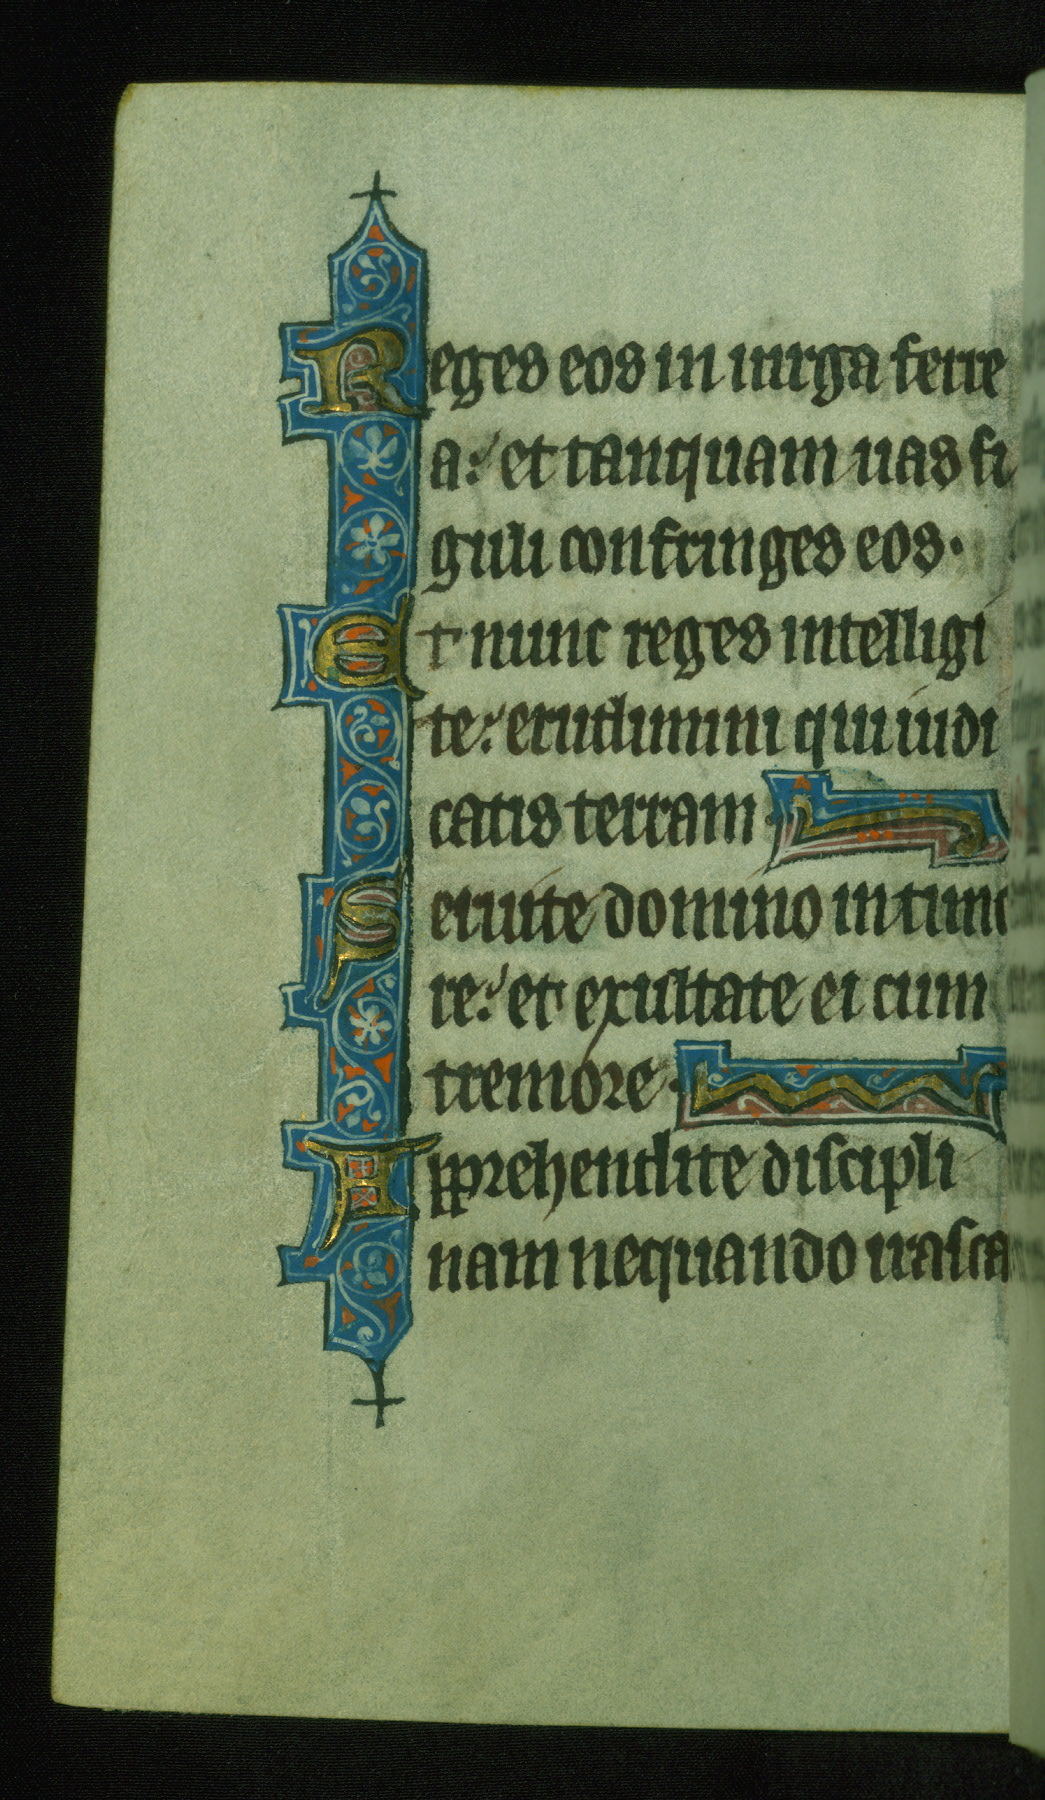 Reges eos in uirga ferre
a: et tanquam uas fi
guli confringes eos.
Et nunc reges intelligi
te: erudimini qui iudi
catis terram
Seruite domino in timo
re: et exultate ei cum
tremore
Apprehendite discipli
nam nequando irasca